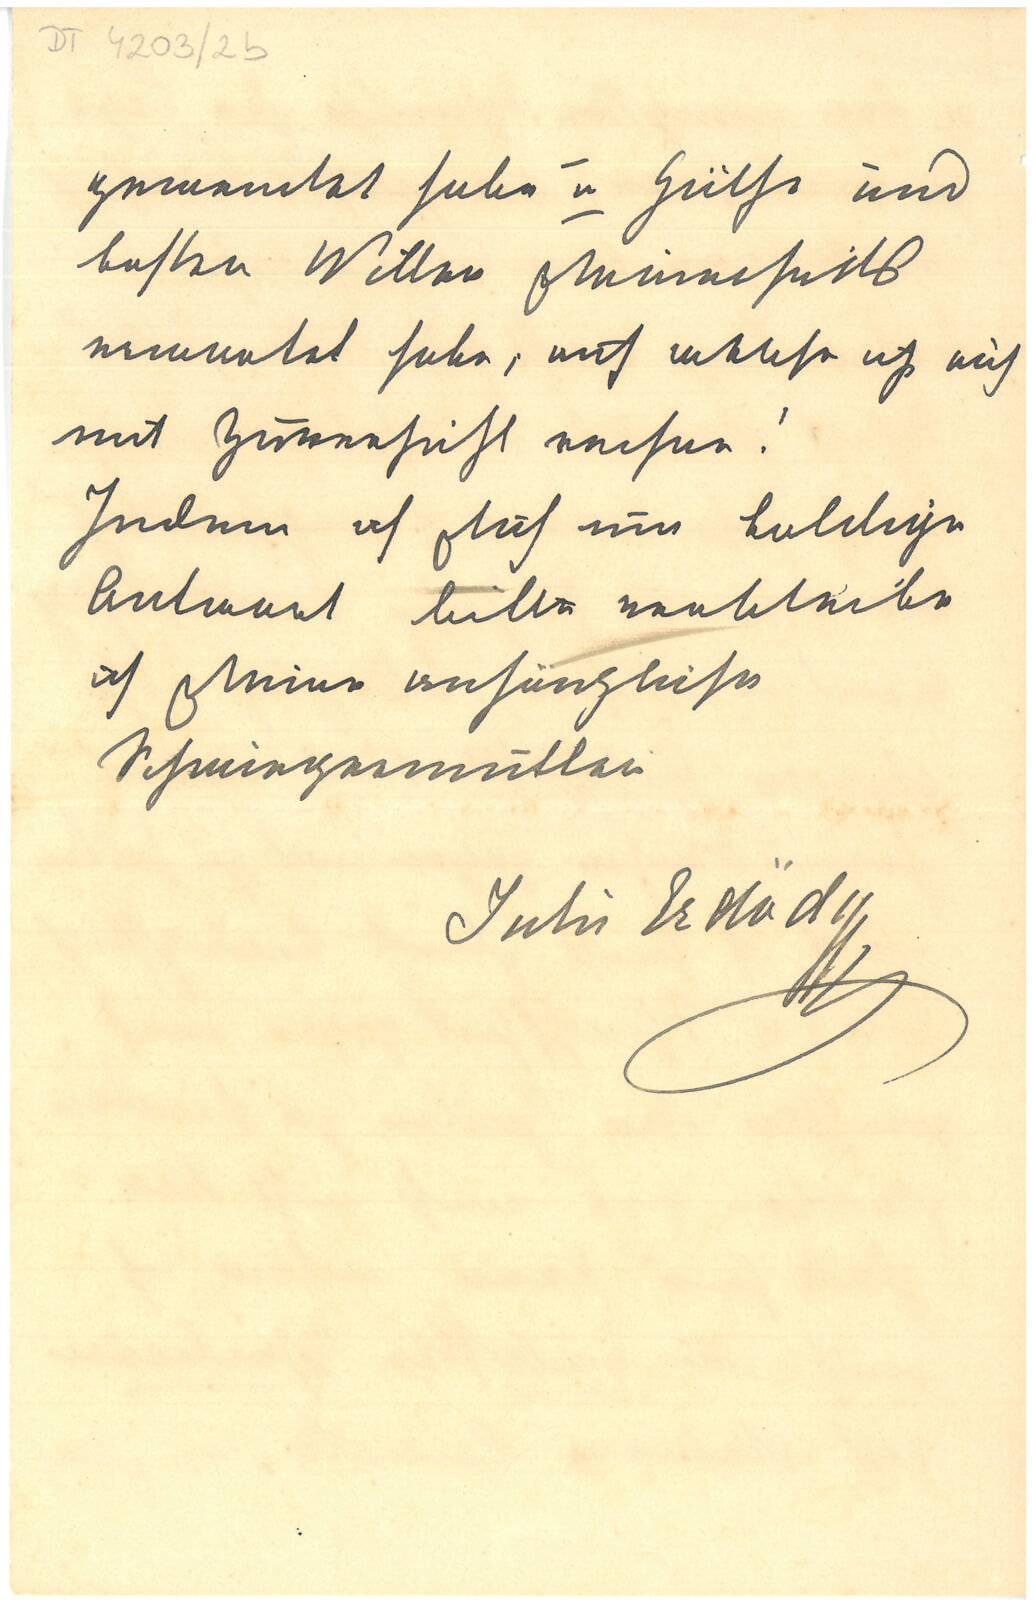 DT 4203/2b
gewendet habe u Hülfe und
besten Willen Deinerseits
erwartet habe, auf welche ich auch
mit Zuversicht rechne!
Indem ich Dich um baldige
Antwort bitte verbleibe
ich Deine anhängliche
Schwiegermutter
Julie Erdödy